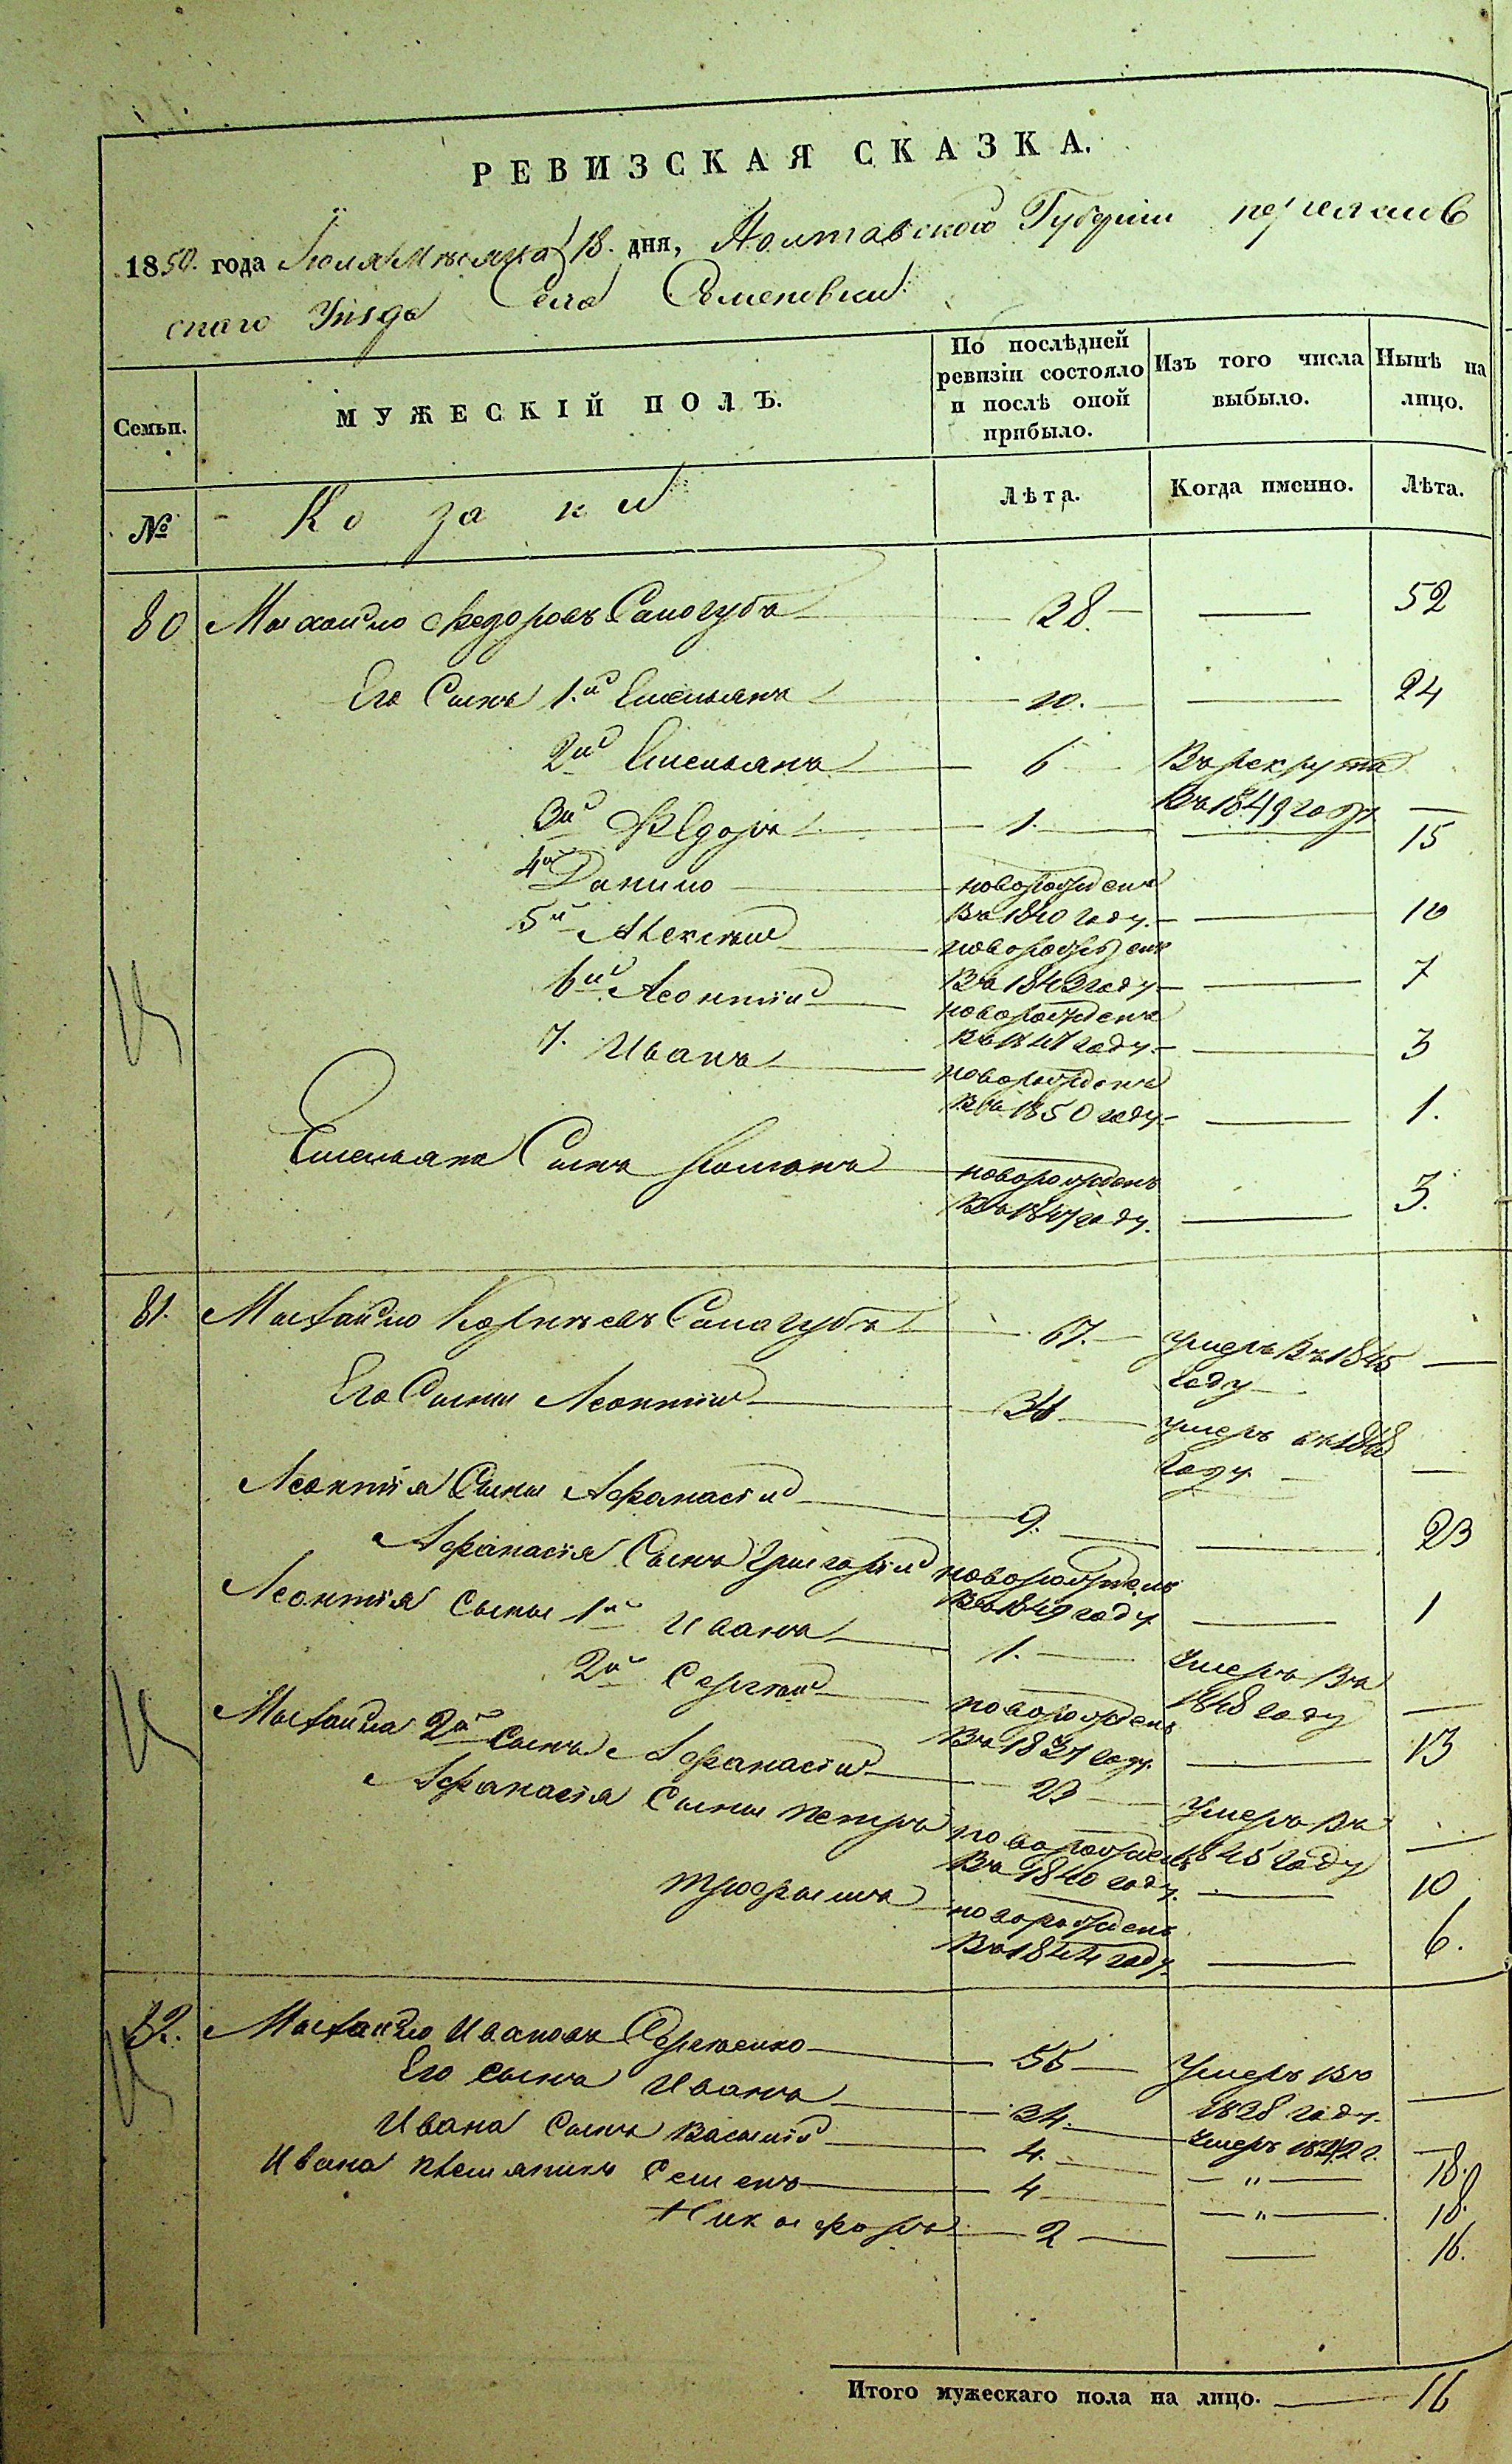 РЕВИЗСКАЯ СКАЗКА.
1850. года Іюля Мѣсяца 18. дня, Полтавской Губерніи переяслав
скаго Уѣзда Села Семеновки
Семьи.
МУЖЕСКІЙ ПОЛЪ.
По послѣдней
ревизіи состояло
и послѣ оной
прибыло.
Изъ того числа
выбыло.
Нынѣ на
лицо.
№
Козаки
Лѣта.
Когда именно.
Лѣта.
80 Михайло Федоровъ Сологубъ 38. 52
Его Сынъ 1.й Емельянъ 10. 24
2й Емельянъ 6 Въ рекрута
въ 1849 году
3й Федоръ 1. 15
4й Данило новорожденъ
въ 1840 году. 10
5й Алексѣй новорожденъ
въ 1843 году 7
6й Леонтій новорожденъ
въ 1847 году 3
7. Иванъ новорожденъ
въ 1850 году 1.
Емельяна Сынъ новорожденъ
въ 1847 году. 3.
81. Михайло Сологубъ 67. умеръ въ 1845
году
Его Сыны Леонтій 36 умеръ въ 1848
году
Леонтія Сыны Афанасій 9. 23
Афанасія Сынъ Григорій новорожденъ
въ 1849 году 1
Леонтія Сыны 1й Иванъ 1. Умеръ въ
1848 году
2й Сергѣй новорожденъ
въ 1837 году 13
Михайла 2й Сынъ Афанасій 23 Умеръ въ
1845 году
Афанасія Сыны Петръ новорожденъ
въ 1840 году. 10
Трофимъ новорожденъ
въ 1844 году 6.
82. Михайло Ивановъ Сергѣенко 55 Умеръ въ
1838 году.
Его сынъ Иванъ 34. Умеръ 1842 г.
Ивана Сынъ Василій 4. " 18.
Ивана племянники Семенъ 4 " 18.
Никифоръ 2 16.
Итого мужескаго пола на лицо. 16